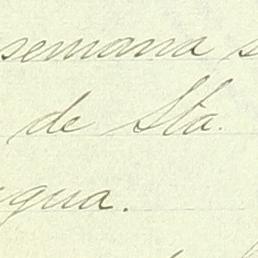 semana s
de Sta.
agua.